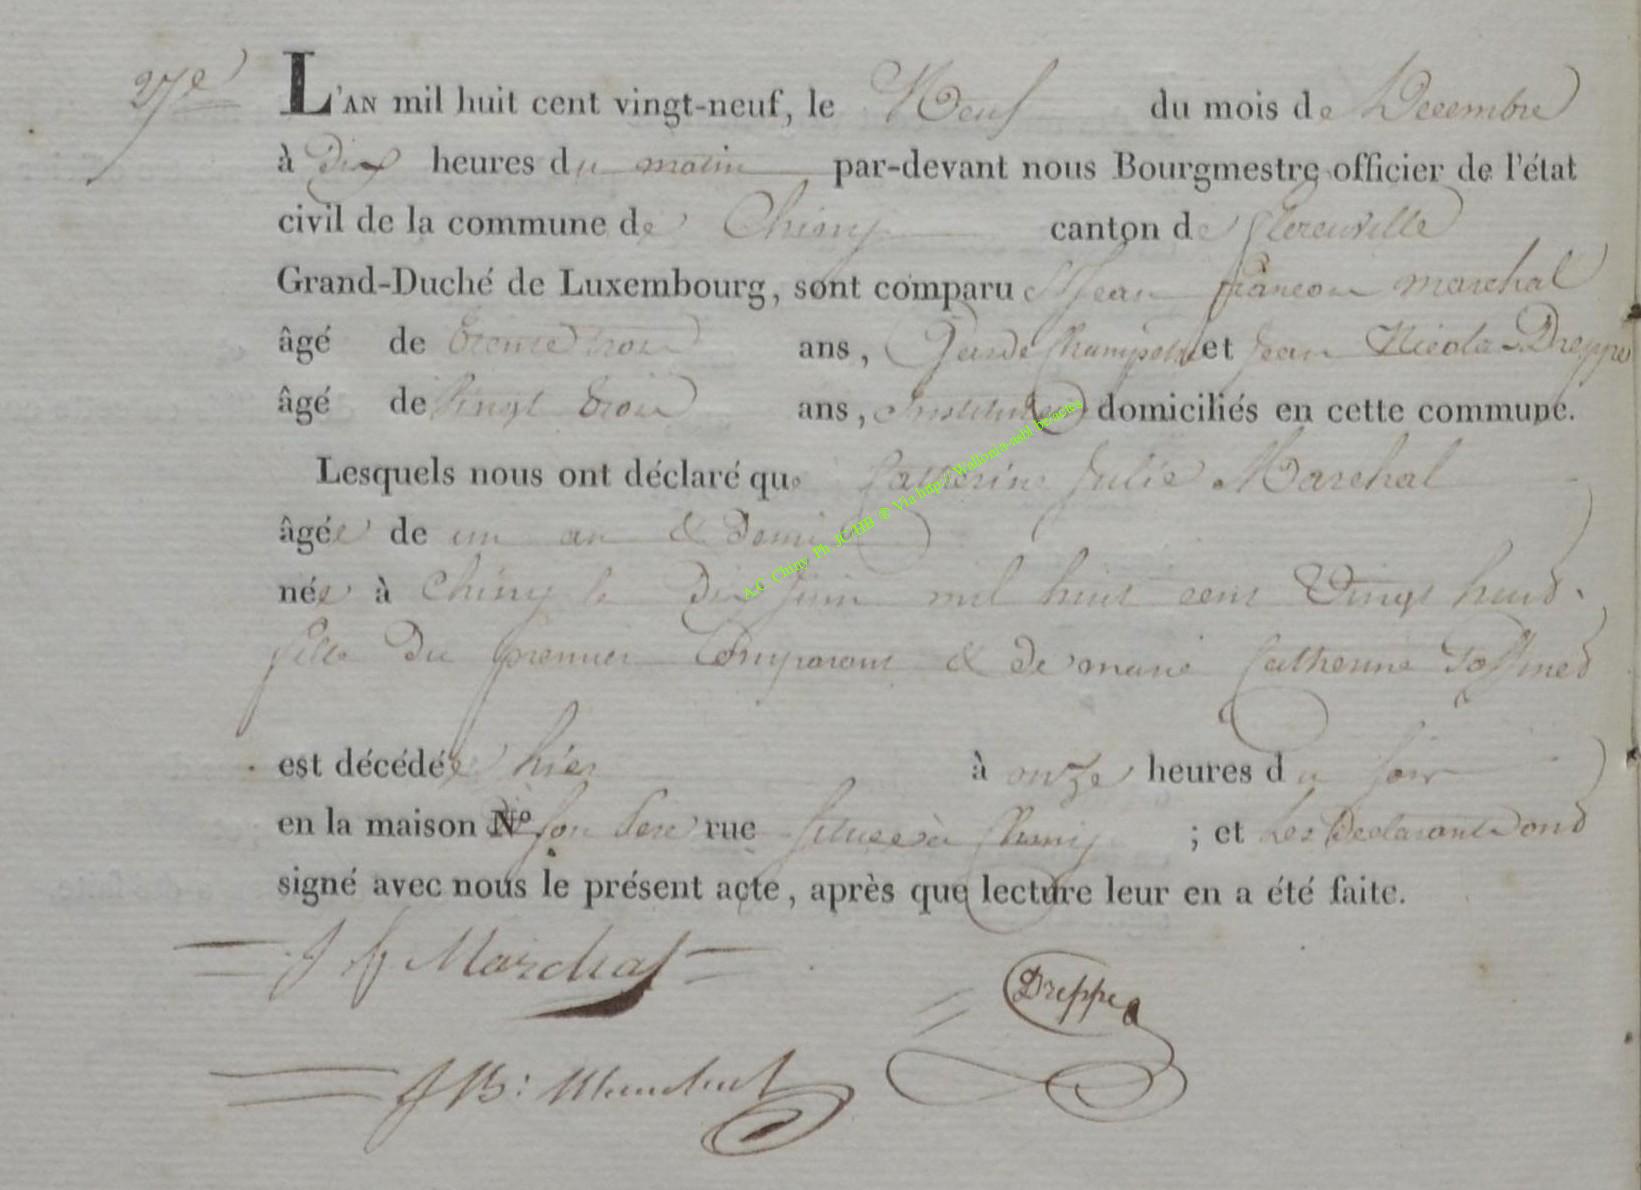 27e L'AN mil huit cent vingt-neuf, le Neuf du mois de Decembre
à Dix heures du matin par-devant nous Bourgmestre officier de l'état
civil de la commune de Chiny canton de florenville
Grand-Duché de Luxembourg, sont comparu Jean françois marchal
âgé de trente trois ans, Garde Champetre et Jean Nicolas Dreppe
âgé de Vingt trois ans, Instituteur domiciliés en cette commune.
Lesquels nous ont déclaré que Catherine Julie Marchal
âgée de un an & Demi
née à Chiny le Dix Juin mil huit cent Vingt huit.
fille Du premier Comparant & de marie Catherine
est décédée hier à onze heures du soir
en la maison No. son Pere rue située à Chiny ; et Les Declarants ont
signé avec nous le présent acte, après que lecture leur en a été faite.
J f Marchal
Dreppe
J B: Marchal
A.C Chiny Ph JC HH ® Via http://Wallonia-asbl.be/actes